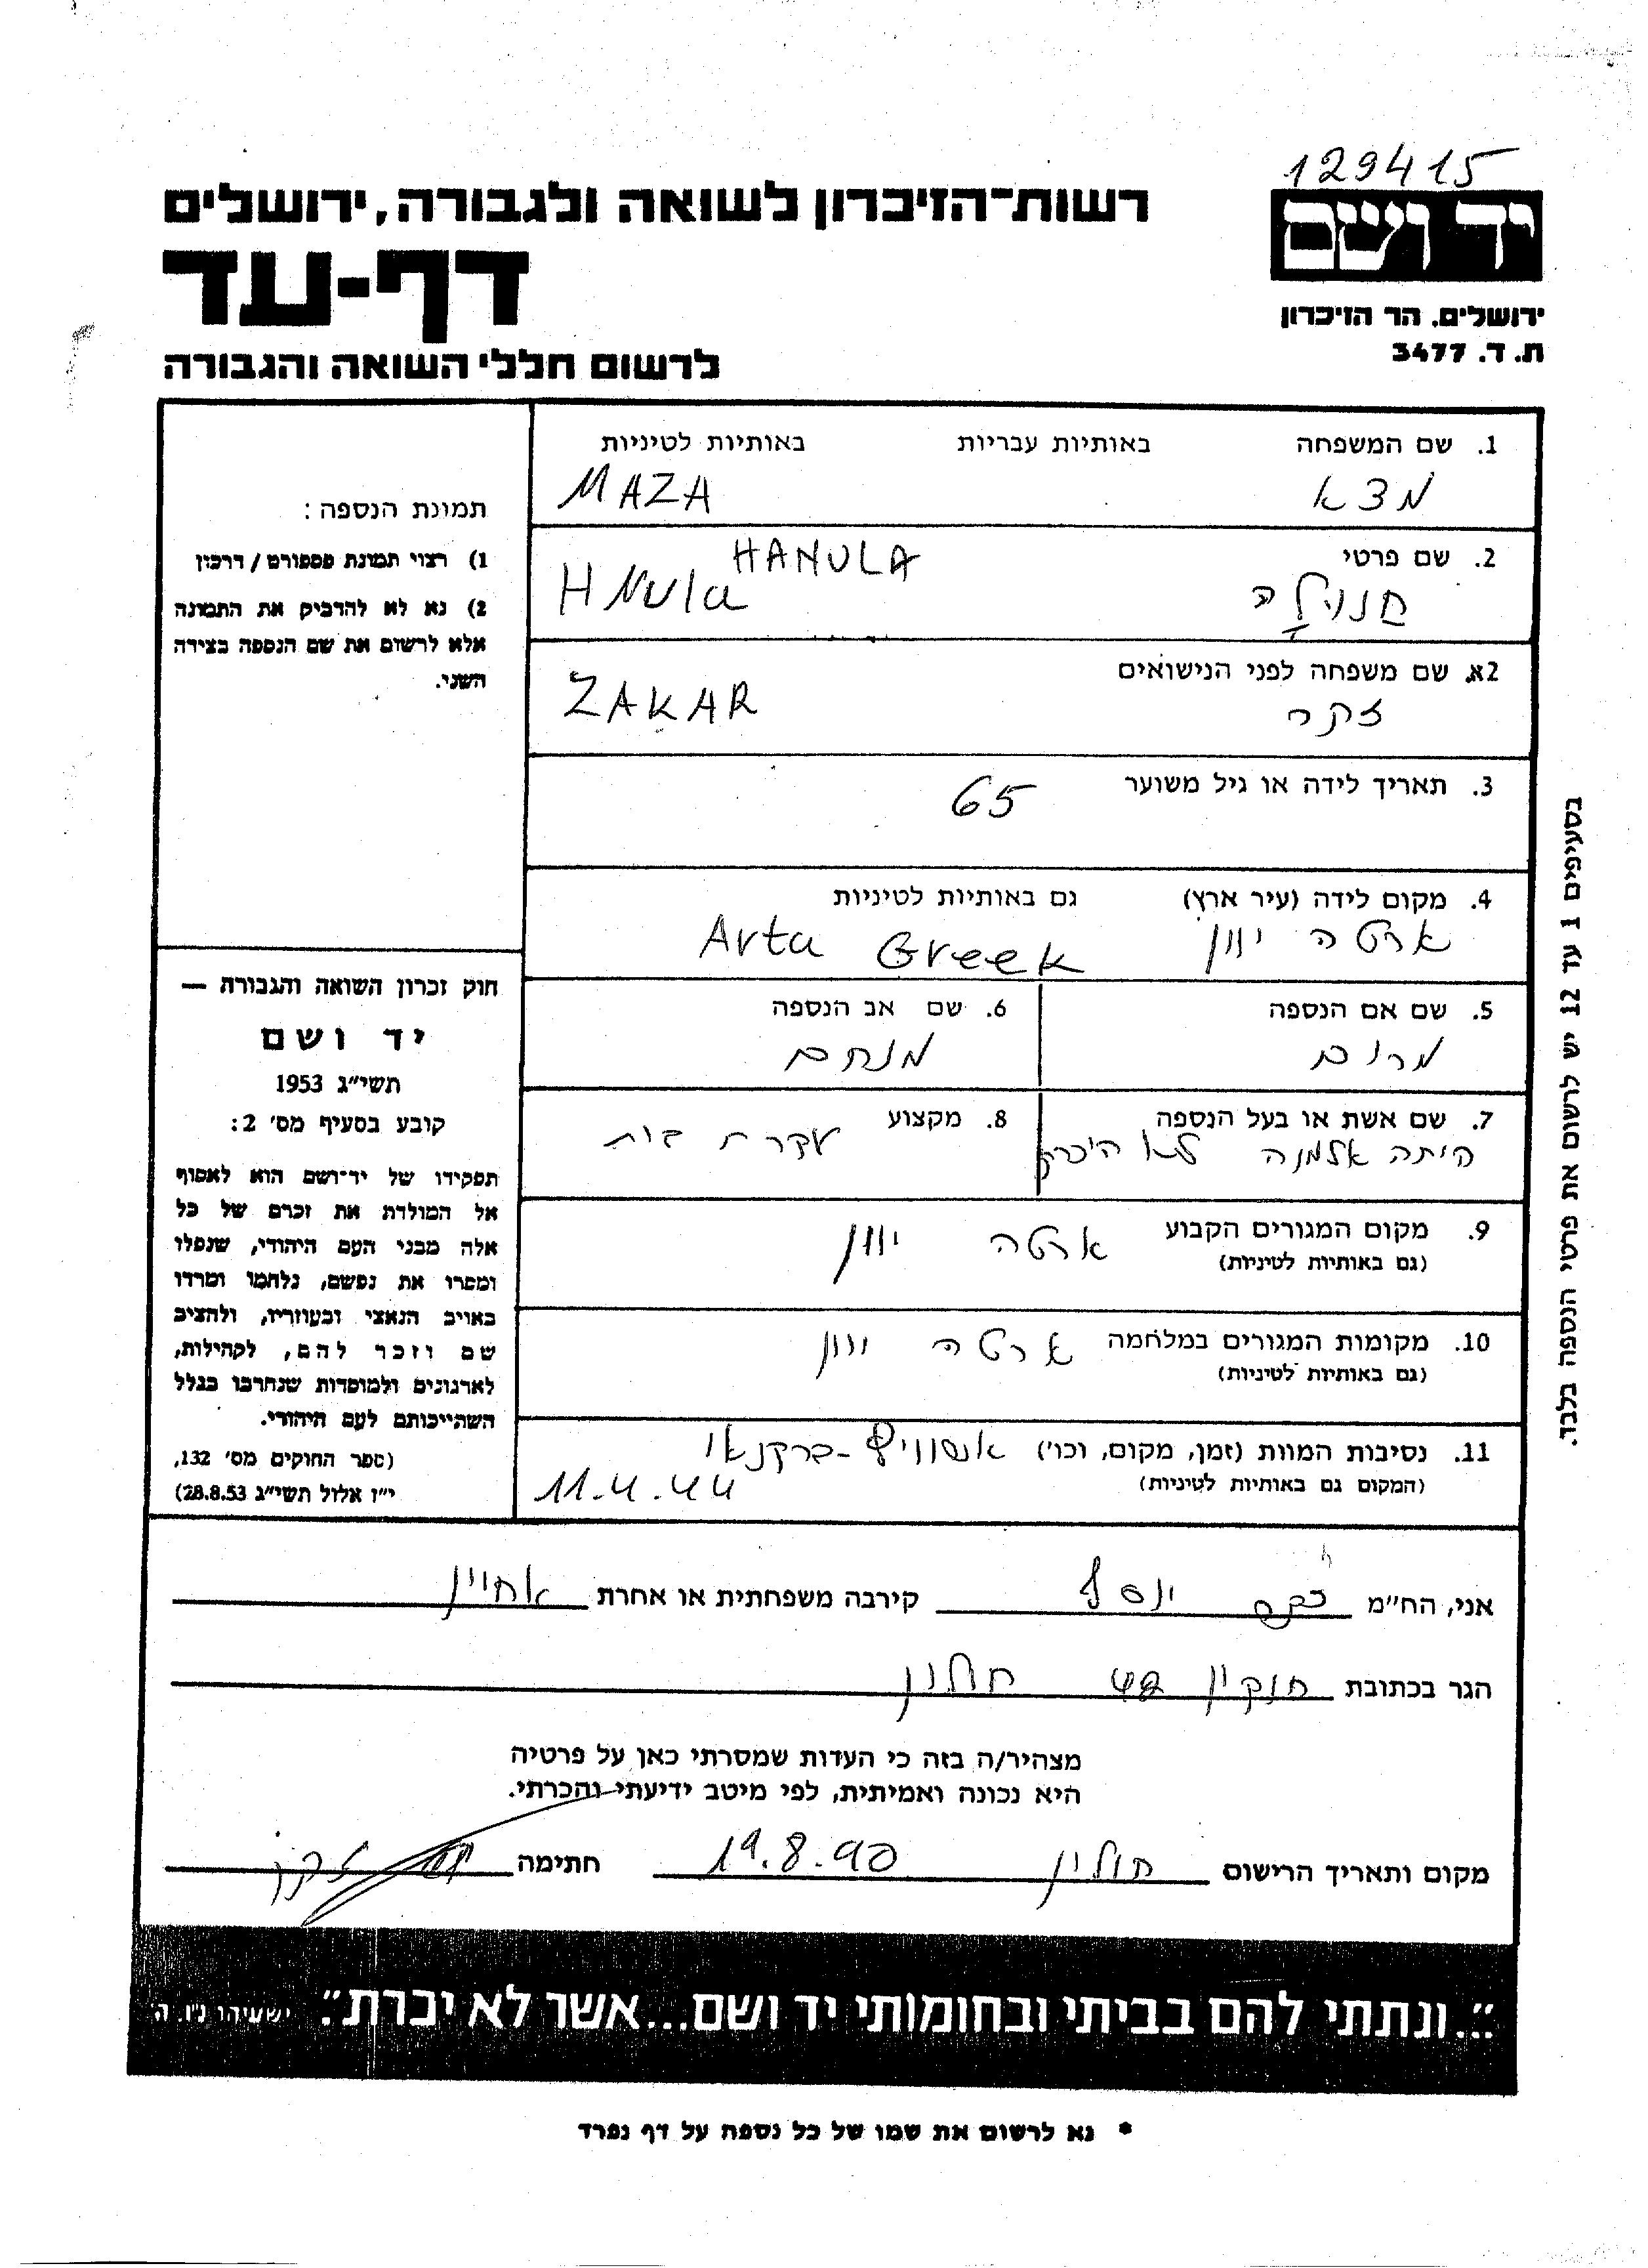 129415
יד ושם
רשות־הזיכרון לשואה ולגבורה, ירושלים
דף-עד
לרשום חללי השואה והגבורה
ירושלים. הר הזיכרון
ת. ד. 3477
1. שם המשפחה באותיות עבריות באותיות לטיניות
מצא MAZA
2. שם פרטי HANULA
חנולה HNula
2א. שם משפחה לפני הנישואים
זקר ZAKAR
3. תאריך לידה או גיל משוער 65
4. מקום לידה (עיר ארץ) גם באותיות לטיניות
ארטה יוון Arta Greek
5. שם אם הנספה 6. שם אב הנספה
מרים מנחם
7. שם אשת או בעל הנספה 8. מקצוע
היתה אלמנה לא עקרת בית
9. מקום המגורים הקבוע ארטה יוון
(גם באותיות לטיניות)
10. מקומות המגורים במלחמה ארטה יוון
(גם באותיות לטיניות)
11. נסיבות המוות (זמן, מקום, וכו') אושוויץ-ברקנאו
(המקום גם באותיות לטיניות) 11.4.44
תמונת הנספה:
1) רצוי תמונת פספורט / דרכון
2) נא לא להדביק את התמונה
אלא לרשום את שם הנספה בצידה
השני.
חוק זכרון השואה והגבורה —
יד ושם
תשי"ג 1953
קובע בסעיף מס' 2:
תפקידו של יד־ושם הוא לאסוף
אל המולדת את זכרם של כל
אלה מבני העם היהודי, שנפלו
ומסרו את נפשם, נלחמו ומרדו
באויב הנאצי ובעוזריו, ולהציב
שם וזכר להם, לקהילות,
לארגונים ולמוסדות שנחרבו בגלל
השתייכותם לעם היהודי.
(ספר החוקים מס' 132,
י"ז אלול תשי"ג 28.8.53)
בסעיפים 1 עד 12 יש לרשום את פרטי הנספה בלבד.
אני, הח"מ יוסף קירבה משפחתית או אחרת אחיין
הגר בכתובת חנקין 42 חולון
מצהיר/ה בזה כי העדות שמסרתי כאן על פרטיה
היא נכונה ואמיתית, לפי מיטב ידיעתי והכרתי.
מקום ותאריך הרישום חולון 19.8.90 חתימה
"...ונתתי להם בביתי ובחומותי יד ושם...אשר לא יכרת". ישעיהו נ"ו. ה'
* נא לרשום את שמו של כל נספה על דף נפרד